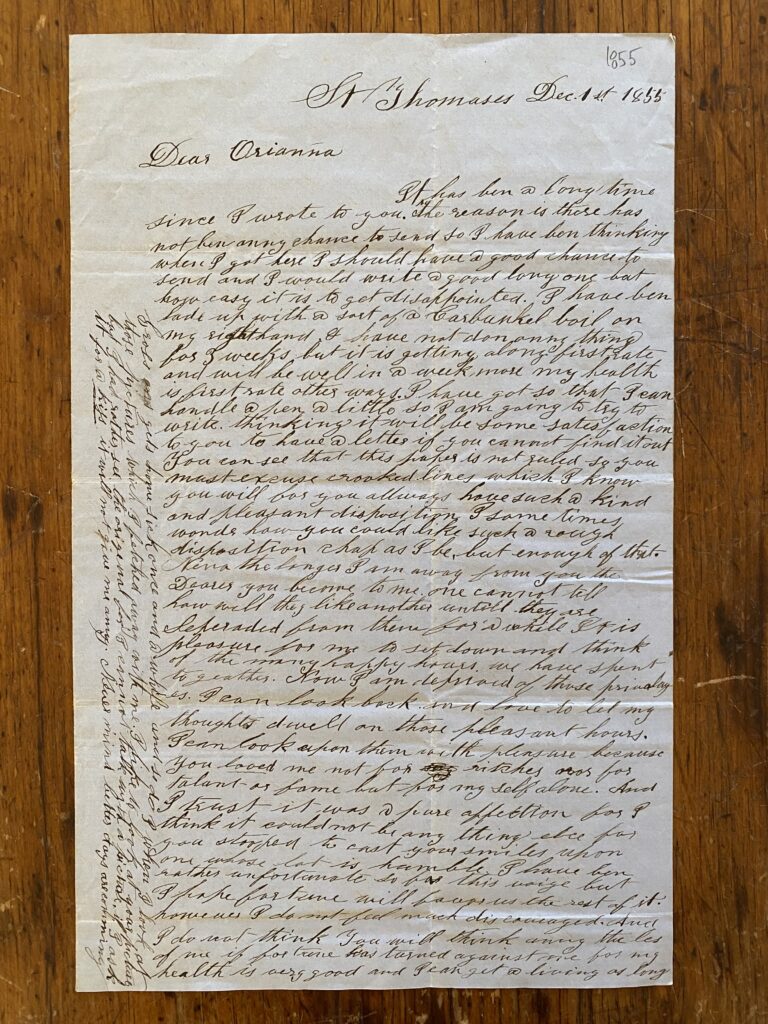 1855
St Thomases Dec. 1st 1855
Dear Orianna
It has ben a long time
since I wrote to you. the reason is there has
not ben anny chance to send so I have ben thinking
when I got here I should have a good chance to
send and I would write a good long one but
how easy it is to get disappointed. I have ben
lade up with a sort of a Carbunkel boil on
my right hand I have not don anny thing
for 3 weeks, but it is getting along first rate
and will be well in a week more my health
is first rate other ways. I have got so that I can
handle a pen a little so I am going to try to
write. thinking it will be some satesfaction
to you to have a letter if you cannot find it out
You can see that this paper is not ruled so you
must excuse crooked lines which I know
you will for you allways have such a kind
and pleasant disposition, I some times
wonder how you could like such a rough
disposition chap as I be, but enough of that
the longer I am away from you the
Dearer you become to me, one cannot tell
how will they like another untill they are
seperaded from them for a while It is
pleasure for me to set down and think
of the many happy hours, we have spent
to geather. Now I am deprived of those privalag
es. I can look back and love to let my
thoughts dwell on those pleasant hours.
I can look upon them with pleasure because
You loved me not for ritches nor for
talant or fame but for my self alone. And
I trust it was a pure affection for I
think it could not be any thing elce for
you stopped to cast your smiles upon
one whose lot is humble I have ben
rather unfortunate so far this voige but
I hope fortune will favor us the rest of it
however I do not feel much discouraged. And
I do not think You will think anny the les
of me if fortune has turned against me for my
health is very good and I can get a living as long
get home sick once and a while and so do I when I look at
that I fetched away with me I
by I had rather see the original for I cannot talk with a picture, if I ask
it for a kiss it will not give me anny Never mind better days are comming